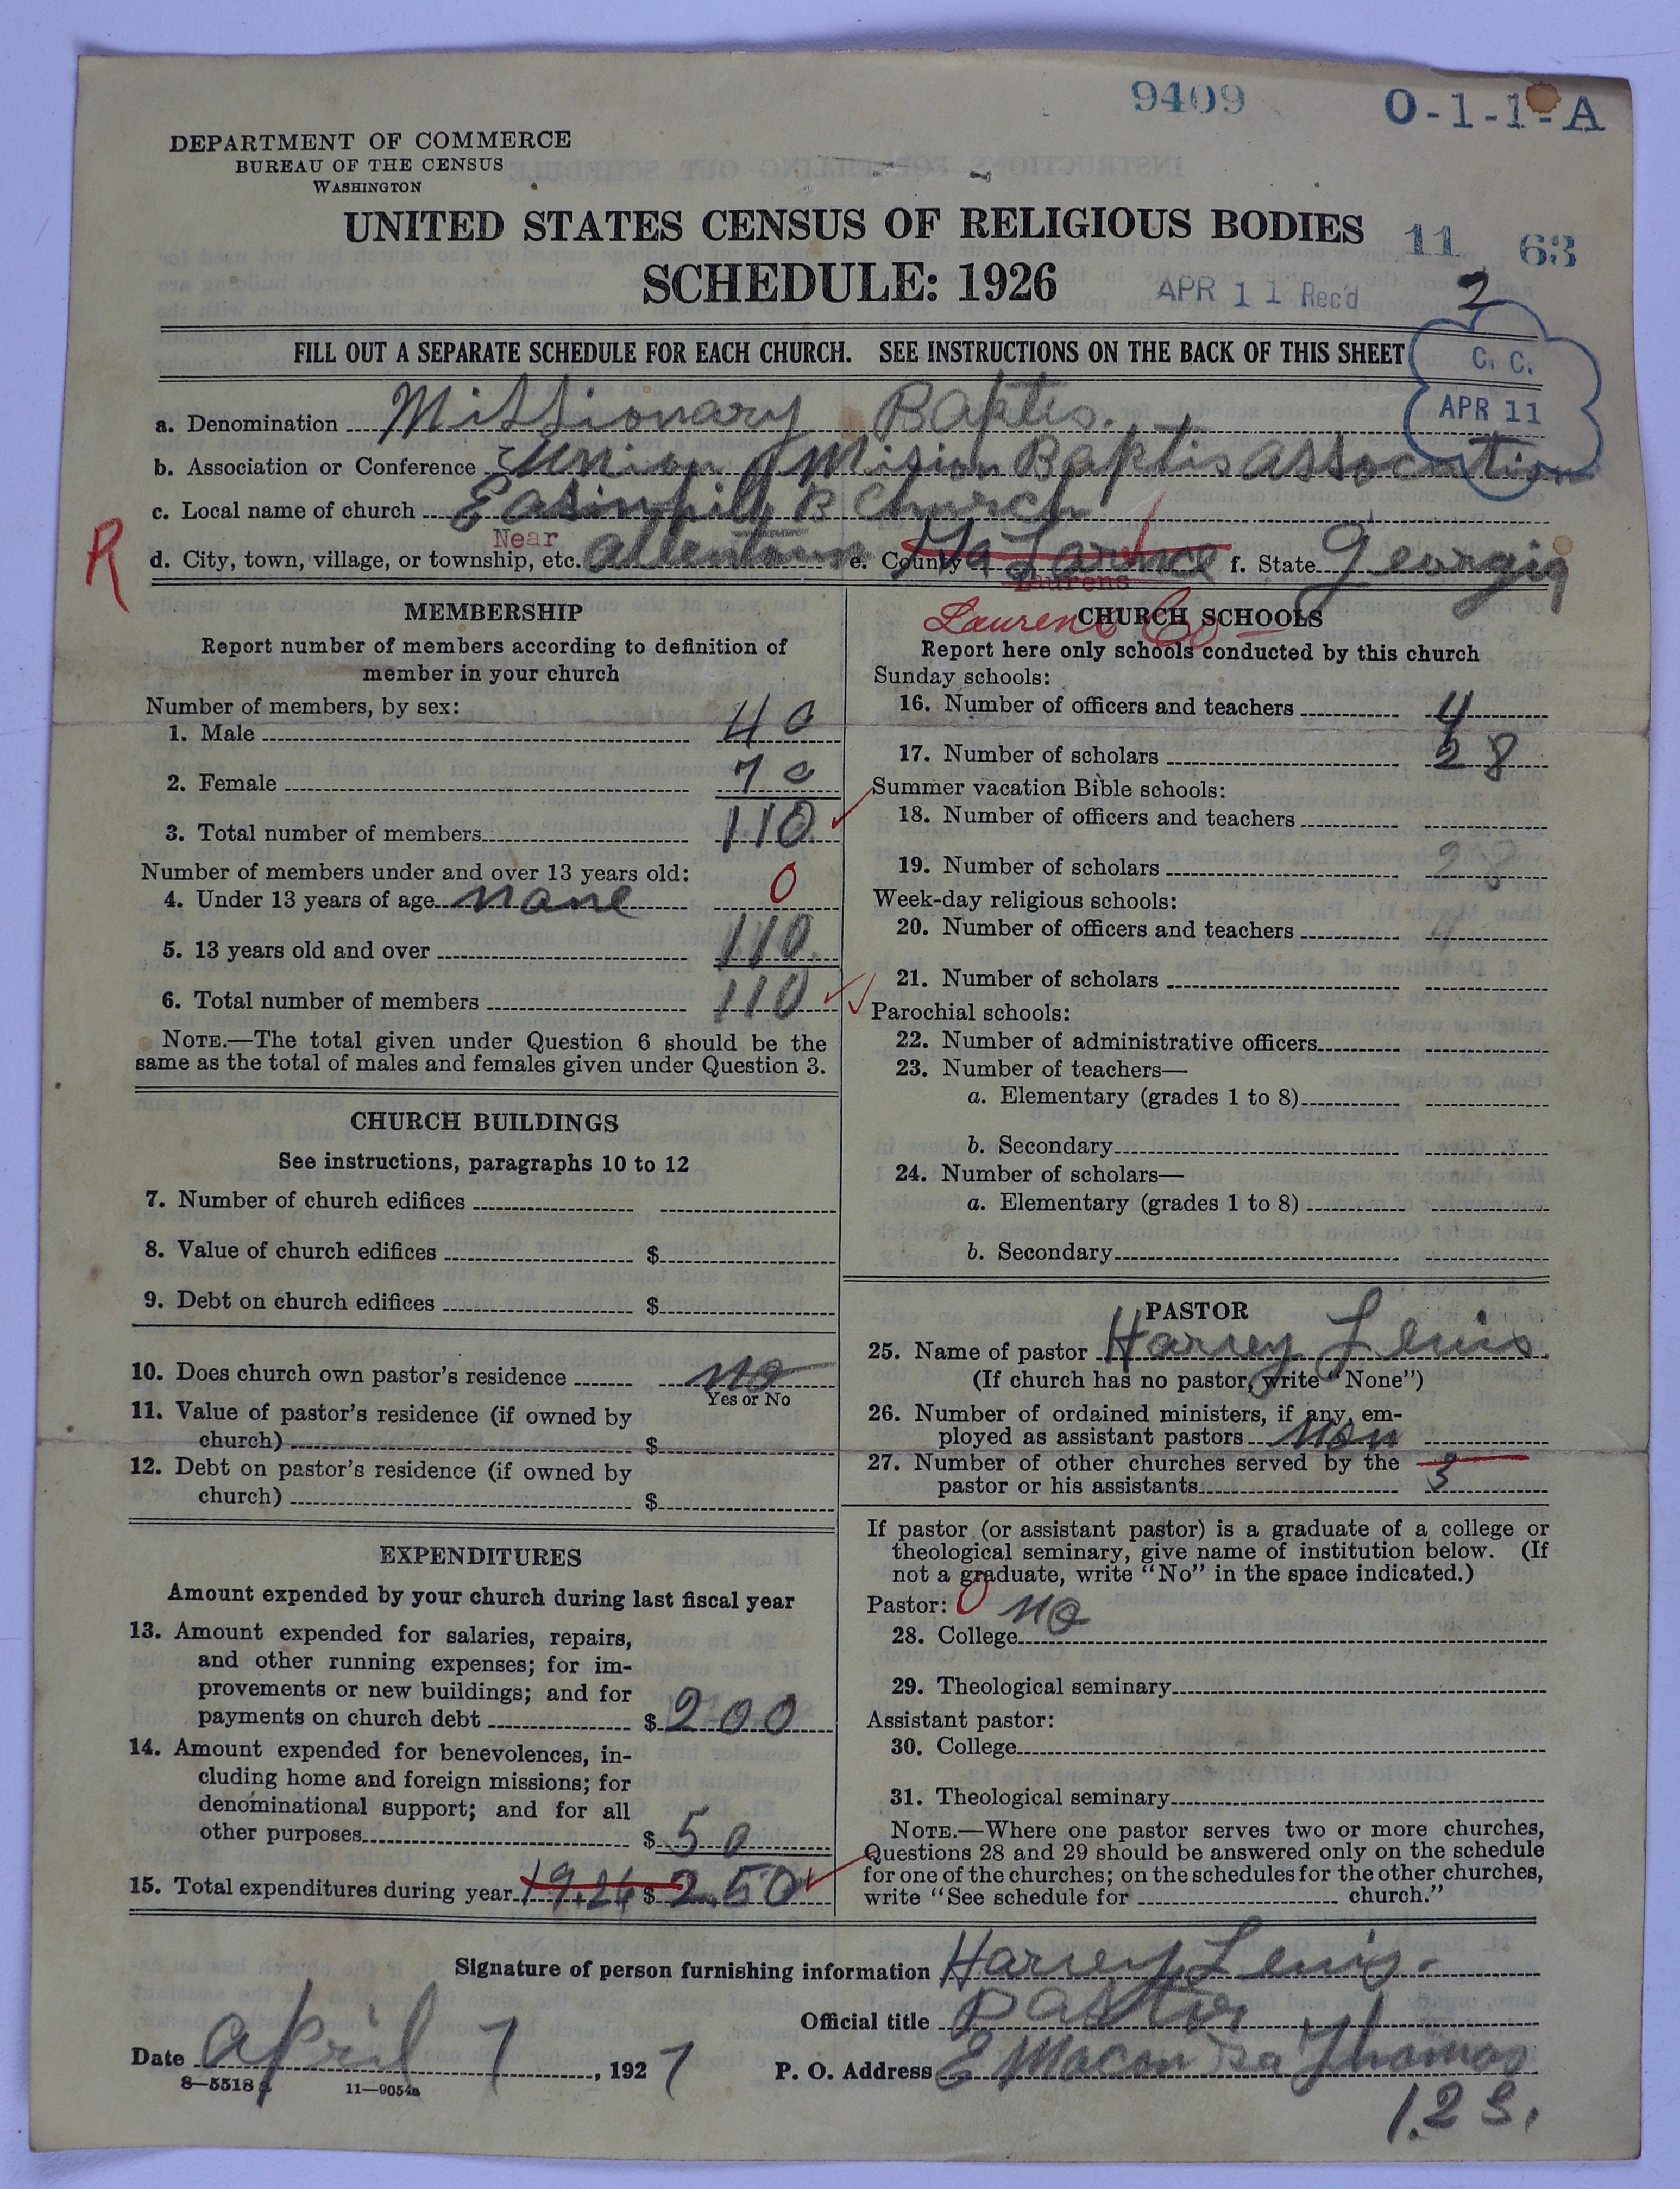 9409 O-1-1-A
DEPARTMENT OF COMMERCE
BUREAU OF THE CENSUS
WASHINGTON
UNITED STATES CENSUS OF RELIGIOUS BODIES
11 63
SCHEDULE: 1926
APR 11 Rec'd 2
FILL OUT A SEPARATE SCHEDULE FOR EACH CHURCH. SEE INSTRUCTIONS ON THE BACK OF THIS SHEET
C. C.
APR 11
a. Denomination Missionary Baptis.
b. Association or Conference Union Mision Baptis association
c. Local name of church B Church
R
Near
d. City, town, village, or township, etc. allentown e. County Ga f. State Georgia
Laurens
Laurens Co
MEMBERSHIP
Report number of members according to definition of
member in your church
Number of members, by sex:
1. Male 40
2. Female 70
3. Total number of members 110
Number of members under and over 13 years old:
4. Under 13 years of age none 0
5. 13 years old and over 110
6. Total number of members 110
NOTE.—The total given under Question 6 should be the
same as the total of males and females given under Question 3.
CHURCH BUILDINGS
See instructions, paragraphs 10 to 12
7. Number of church edifices
8. Value of church edifices $
9. Debt on church edifices $
10. Does church own pastor's residence no
Yes or No
11. Value of pastor's residence (if owned by
church) $
12. Debt on pastor's residence (if owned by
church) $
EXPENDITURES
Amount expended by your church during last fiscal year
13. Amount expended for salaries, repairs,
and other running expenses; for im-
provements or new buildings; and for
payments on church debt $ 200
14. Amount expended for benevolences, in-
cluding home and foreign missions; for
denominational support; and for all
other purposes $ 50
15. Total expenditures during year 1926 $ 2.50
CHURCH SCHOOLS
Report here only schools conducted by this church
Sunday schools:
16. Number of officers and teachers 4
17. Number of scholars 28
Summer vacation Bible schools:
18. Number of officers and teachers
19. Number of scholars 28
Week-day religious schools:
20. Number of officers and teachers 4
21. Number of scholars
Parochial schools:
22. Number of administrative officers
23. Number of teachers—
a. Elementary (grades 1 to 8)
b. Secondary
24. Number of scholars—
a. Elementary (grades 1 to 8)
b. Secondary
PASTOR
25. Name of pastor Harvey Lewis.
(If church has no pastor, write "None")
26. Number of ordained ministers, if any, em-
ployed as assistant pastors non
27. Number of other churches served by the
pastor or his assistants 3
If pastor (or assistant pastor) is a graduate of a college or
theological seminary, give name of institution below. (If
not a graduate, write "No" in the space indicated.)
Pastor: 0 no
28. College
29. Theological seminary
Assistant pastor:
30. College
31. Theological seminary
NOTE.—Where one pastor serves two or more churches,
Questions 28 and 29 should be answered only on the schedule
for one of the churches; on the schedules for the other churches,
write "See schedule for church."
Signature of person furnishing information Harvey Lewis.
Official title pastor
Date april 7, 1927 P. O. Address E Macon Ga Thomas
8—5518 a 11—9054a
123.